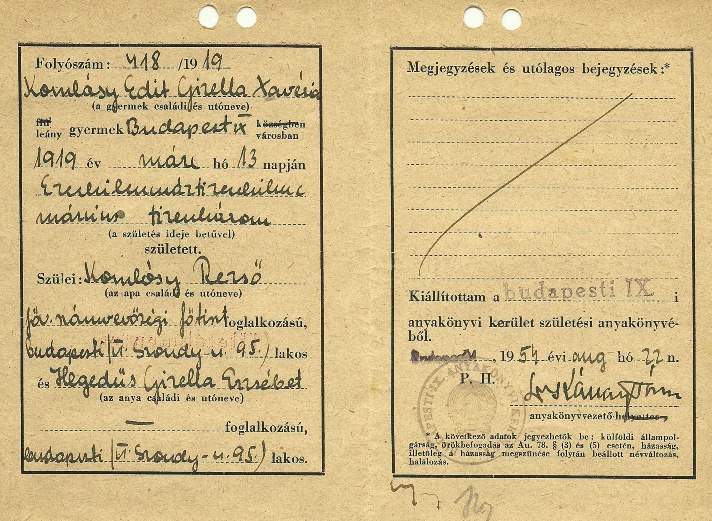 Folyószám: 418 /1919
Komlósy Edit Gizella Xavéria
(a gyermek családi és utóneve)
fiú
leány gyermek Budapest IX községben
városban
1919 év márc hó 13 napján
Ezerkilencszáztizenkilenc
március tizenhárom
(a születés ideje betűvel)
született.
Szülei: Komlósy Rezső
(az apa családi és utóneve)
főv. számvevőségi főtiszt foglalkozású,
budapesti ( u. 95.) lakos
és Hegedüs Gizella Erzsébet
(az anya családi és utóneve)
— foglalkozású,
budapesti ( u. 95.) lakos.
Megjegyzések és utólagos bejegyzések:*
Kiállítottam a budapesti IX. i
anyakönyvi kerület születési anyakönyvé-
ből.
Budapest, 1954 évi aug hó 22 n.
P. H.
anyakönyvvezető-helyettes
* A következő adatok jegyezhetők be: külföldi állampol-
gárság, örökbefogadás az Au. 78. § (3) és (5) esetén, házasság,
illetőleg a házasság megszűnése folytán beállott névváltozás,
halálozás.